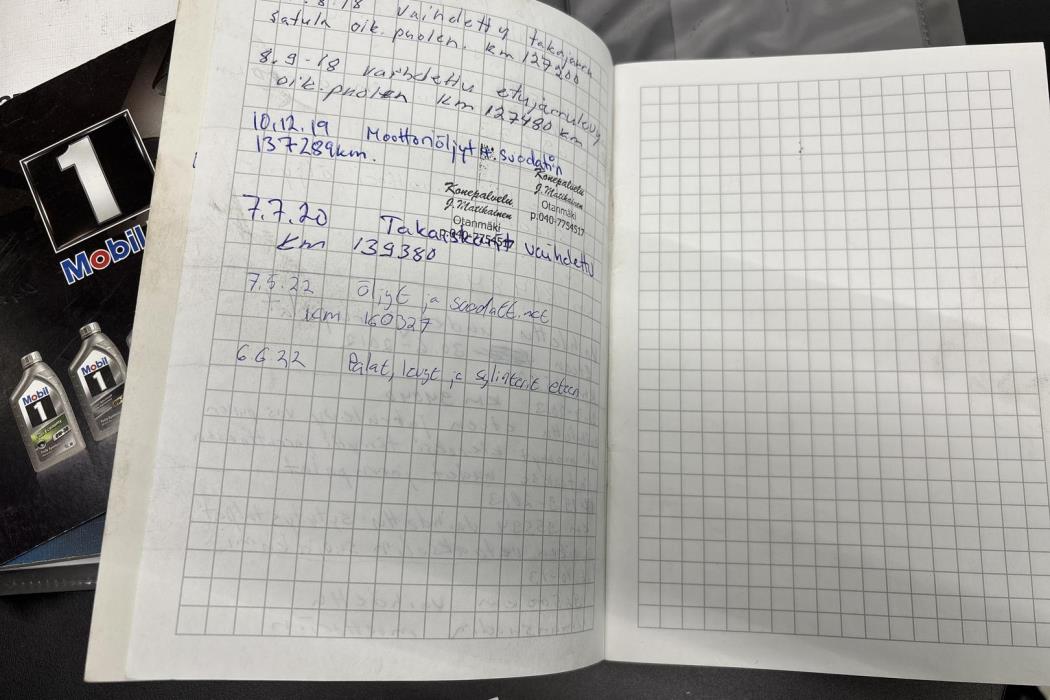 .8.18 vaihdettu takajarru
satula oik. puolen. km 127200
8.9-18 vaihdettu etujarrulevy
oik. puolen km 127480 km
10.12.19 Moottoriöljyt + suodatin
137289km.
Konepalvelu
J. Matikainen
Otanmäki
p.040-7754517
Konepalvelu
J. Matikainen
Otanmäki
p.040-7754517
7.7.20 vaihdettu
km 139380
7.5.22 öljyt ja suodattimet
km 160327
6 6 22 Palat, levyt ja sylinterit eteen
1
Mobil
Mobil
1
Mobil
1